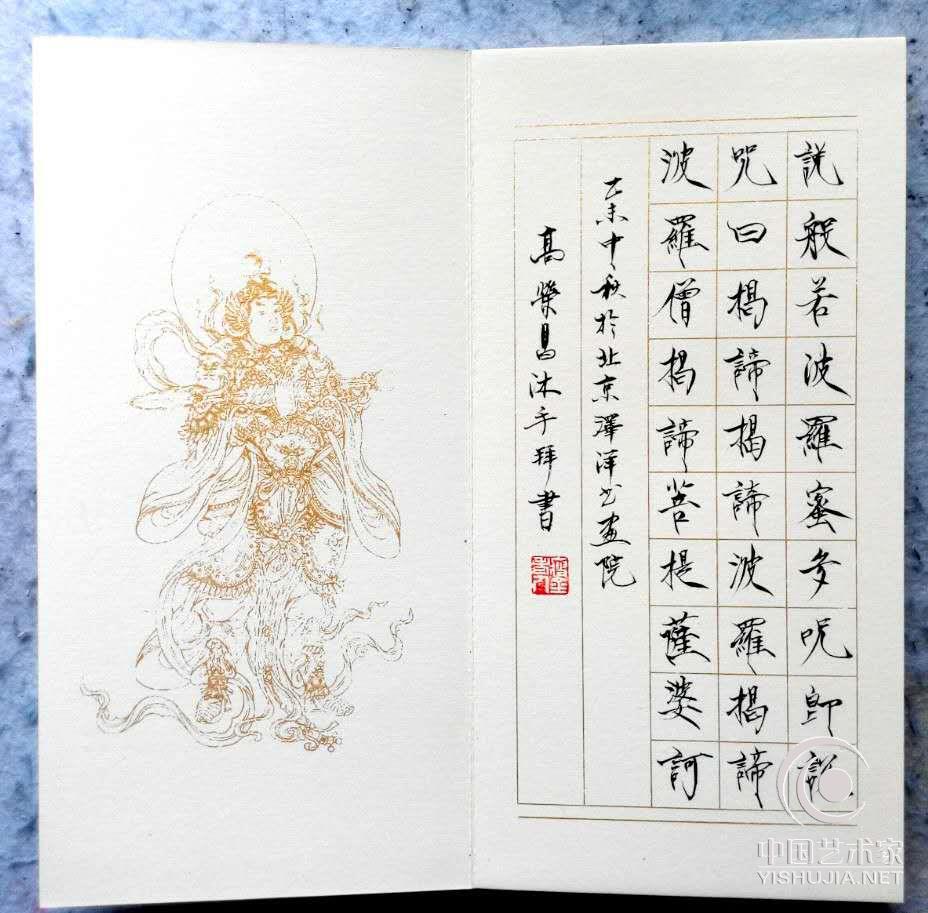 説般若波羅蜜多呪即説
咒曰揭諦揭諦波羅揭諦
波羅僧揭諦菩提薩婆訶
乙未中秋於北京澤洋书画院
高榮昌沐手拜書
中国艺术家
YISHUJIA.NET